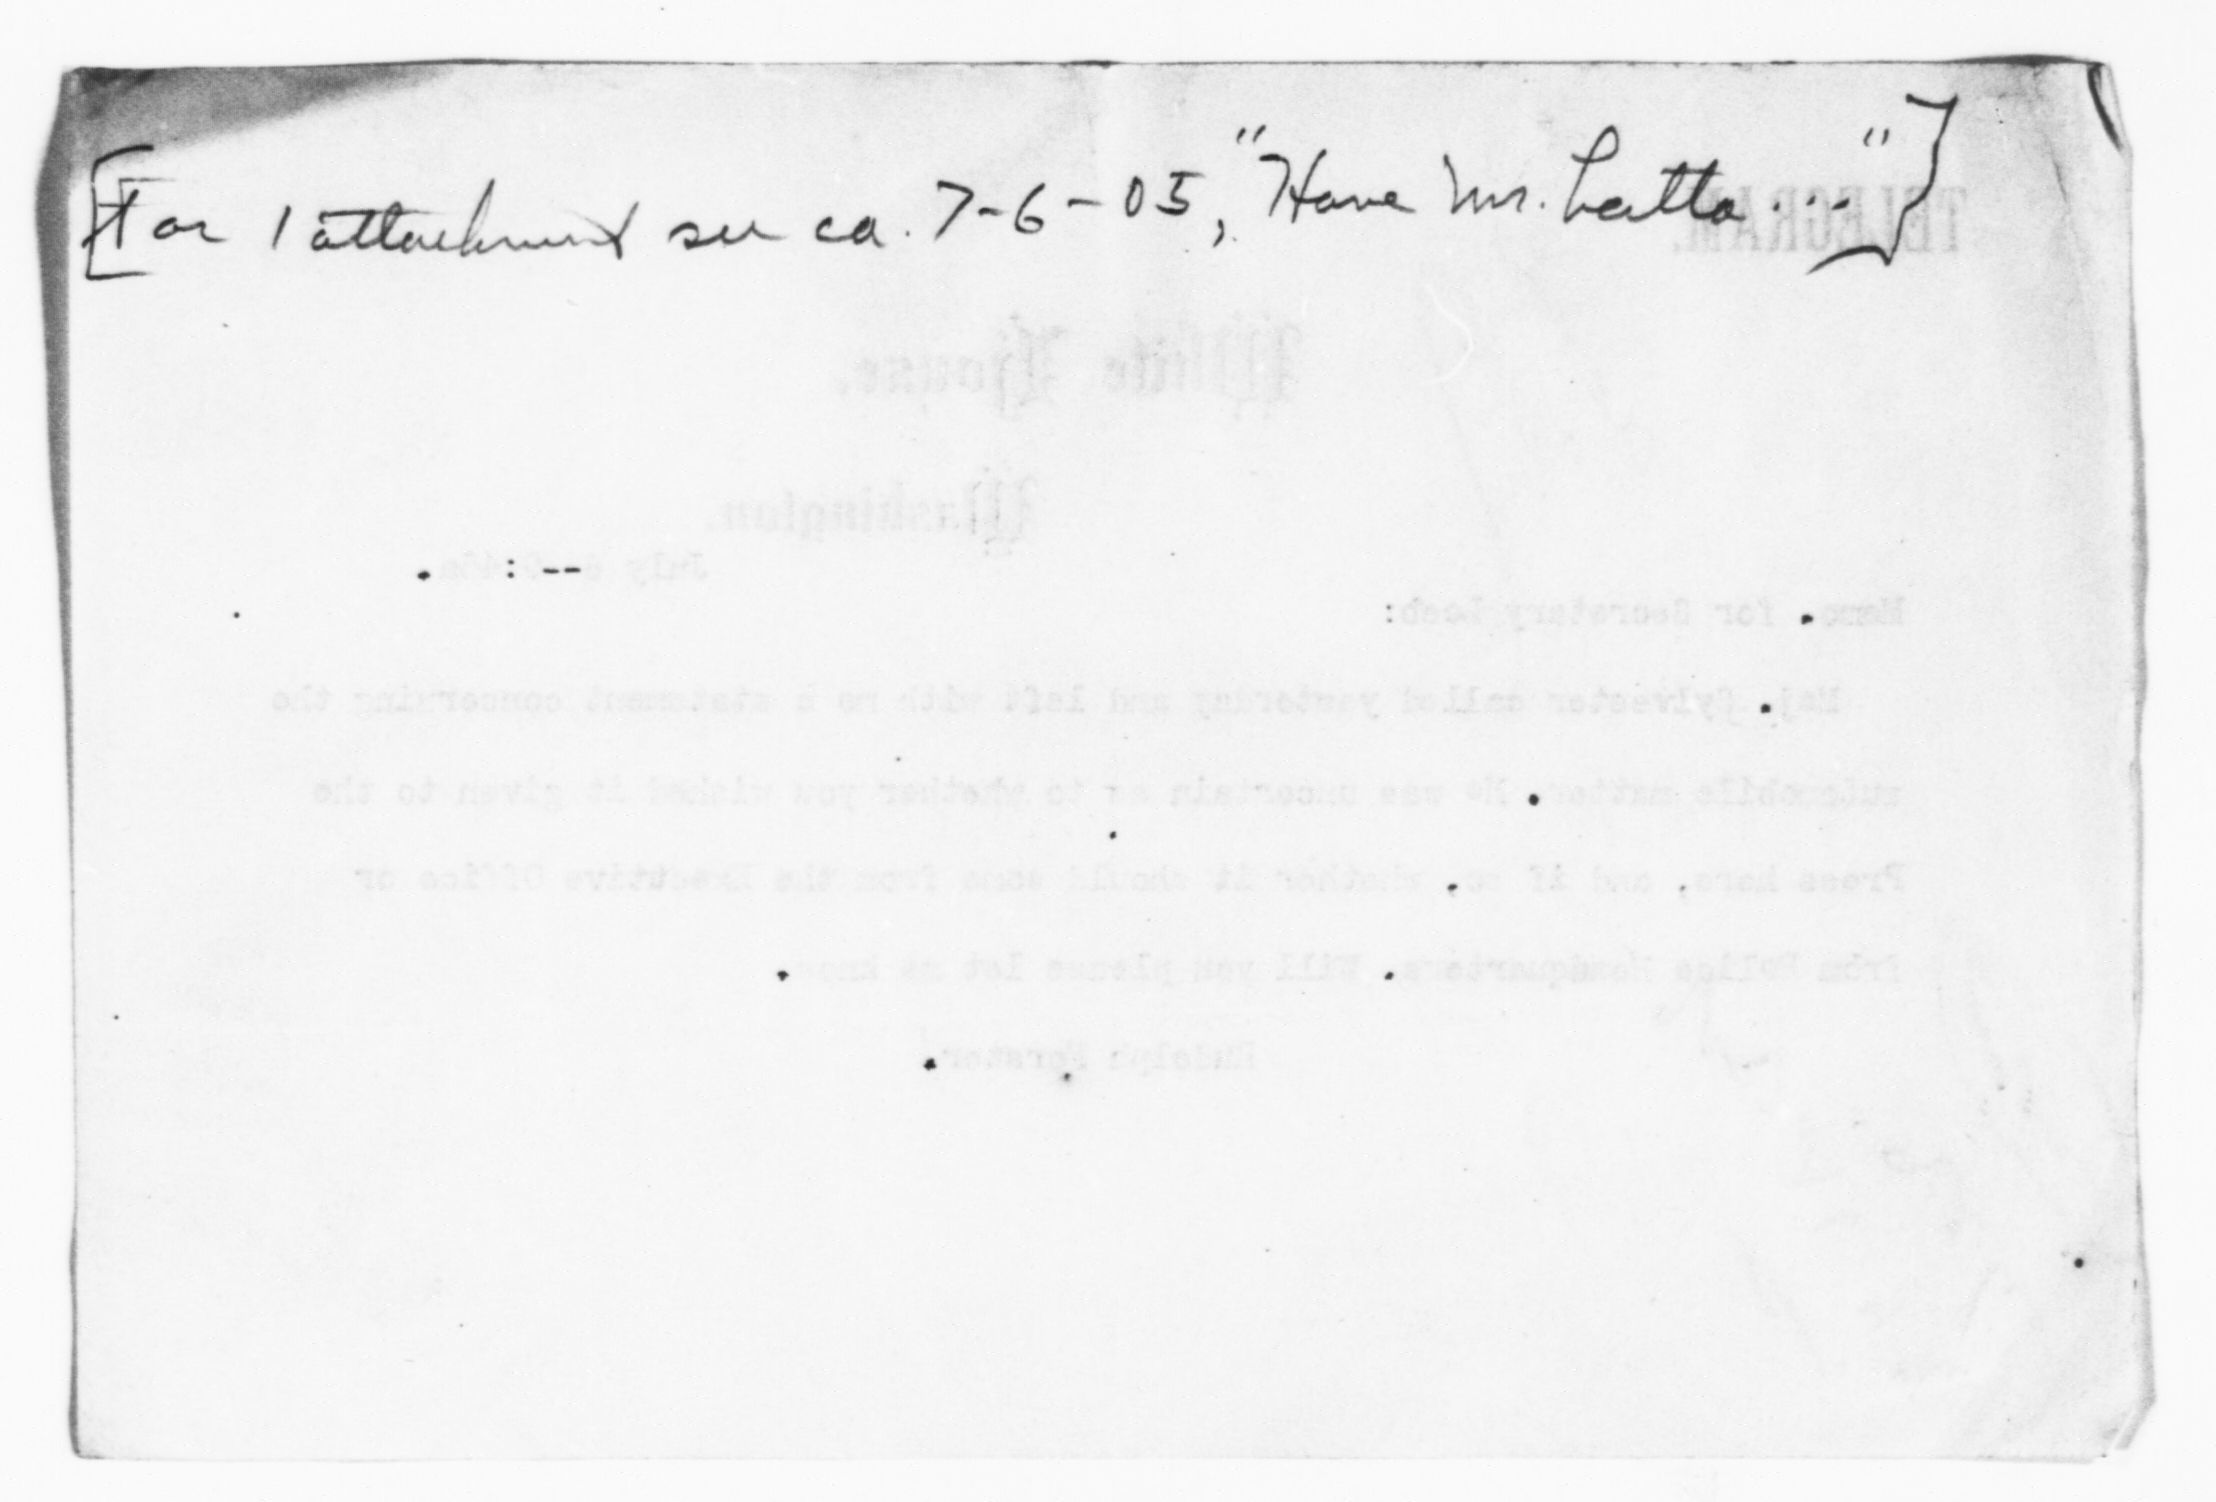 [For 1 attachment see ca. 7-6-05, "Have Mr. Latta..."]
TELEGRAM.
White House.
Washington.
July 6--9:40a.
Memo. for Secretary Loeb:
Maj. Sylvester called yesterday and left with me a statement concerning the
automobile matter. He was uncertain as to whether you wished it given to the
Press here, and if so, whether it should come from the Executive Office or
from Police Headquarters. Will you please let me know.
Rudolph Forster.